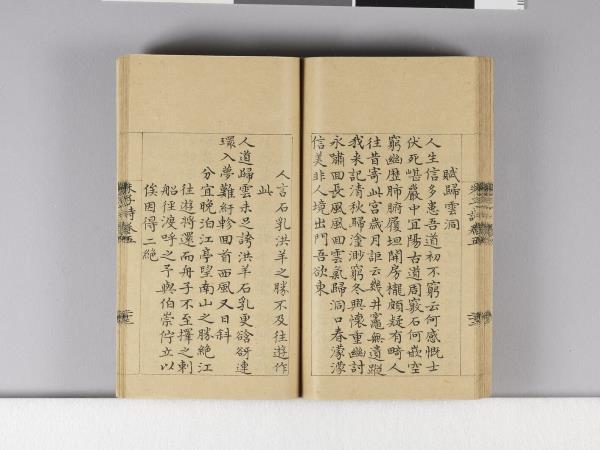 賦歸雲洞
人生信多患吾道初不窮云何感慨士
伏死嵁巖中宜陽古道周竅石何嵌空
窮幽歷肺腑履坦開房櫳頗疑有畸人
往昔寄此宮歲月詎云幾井竈無遺蹤
我来記清秋歸塗渺窮冬興懷重幽討
永嘯回長風風回雲氣歸洞口春濛濛
信美非人境出門吾欲東
人言石乳洪羊之勝不及往遊作
此
人道歸雲未足誇洪羊石乳更谽谺連
環入夢難紆軫回首西風又日斜
分宜晚泊江亭望南山之勝絶江
往遊將還而舟子不至擇之刺
船徑渡呼之予與伯崇佇立以
俟因得二絶